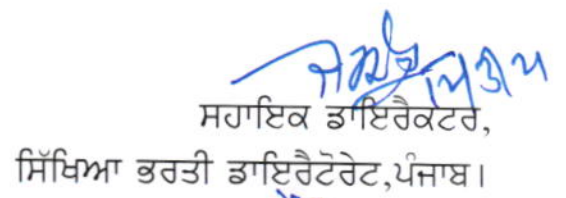 ਸਹਾਇਕ ਡਾਇਰੈਕਟਰ,
ਸਿੱਖਿਆ ਭਰਤੀ ਡਾਇਰੈਟੋਰੇਟ,ਪੰਜਾਬ।